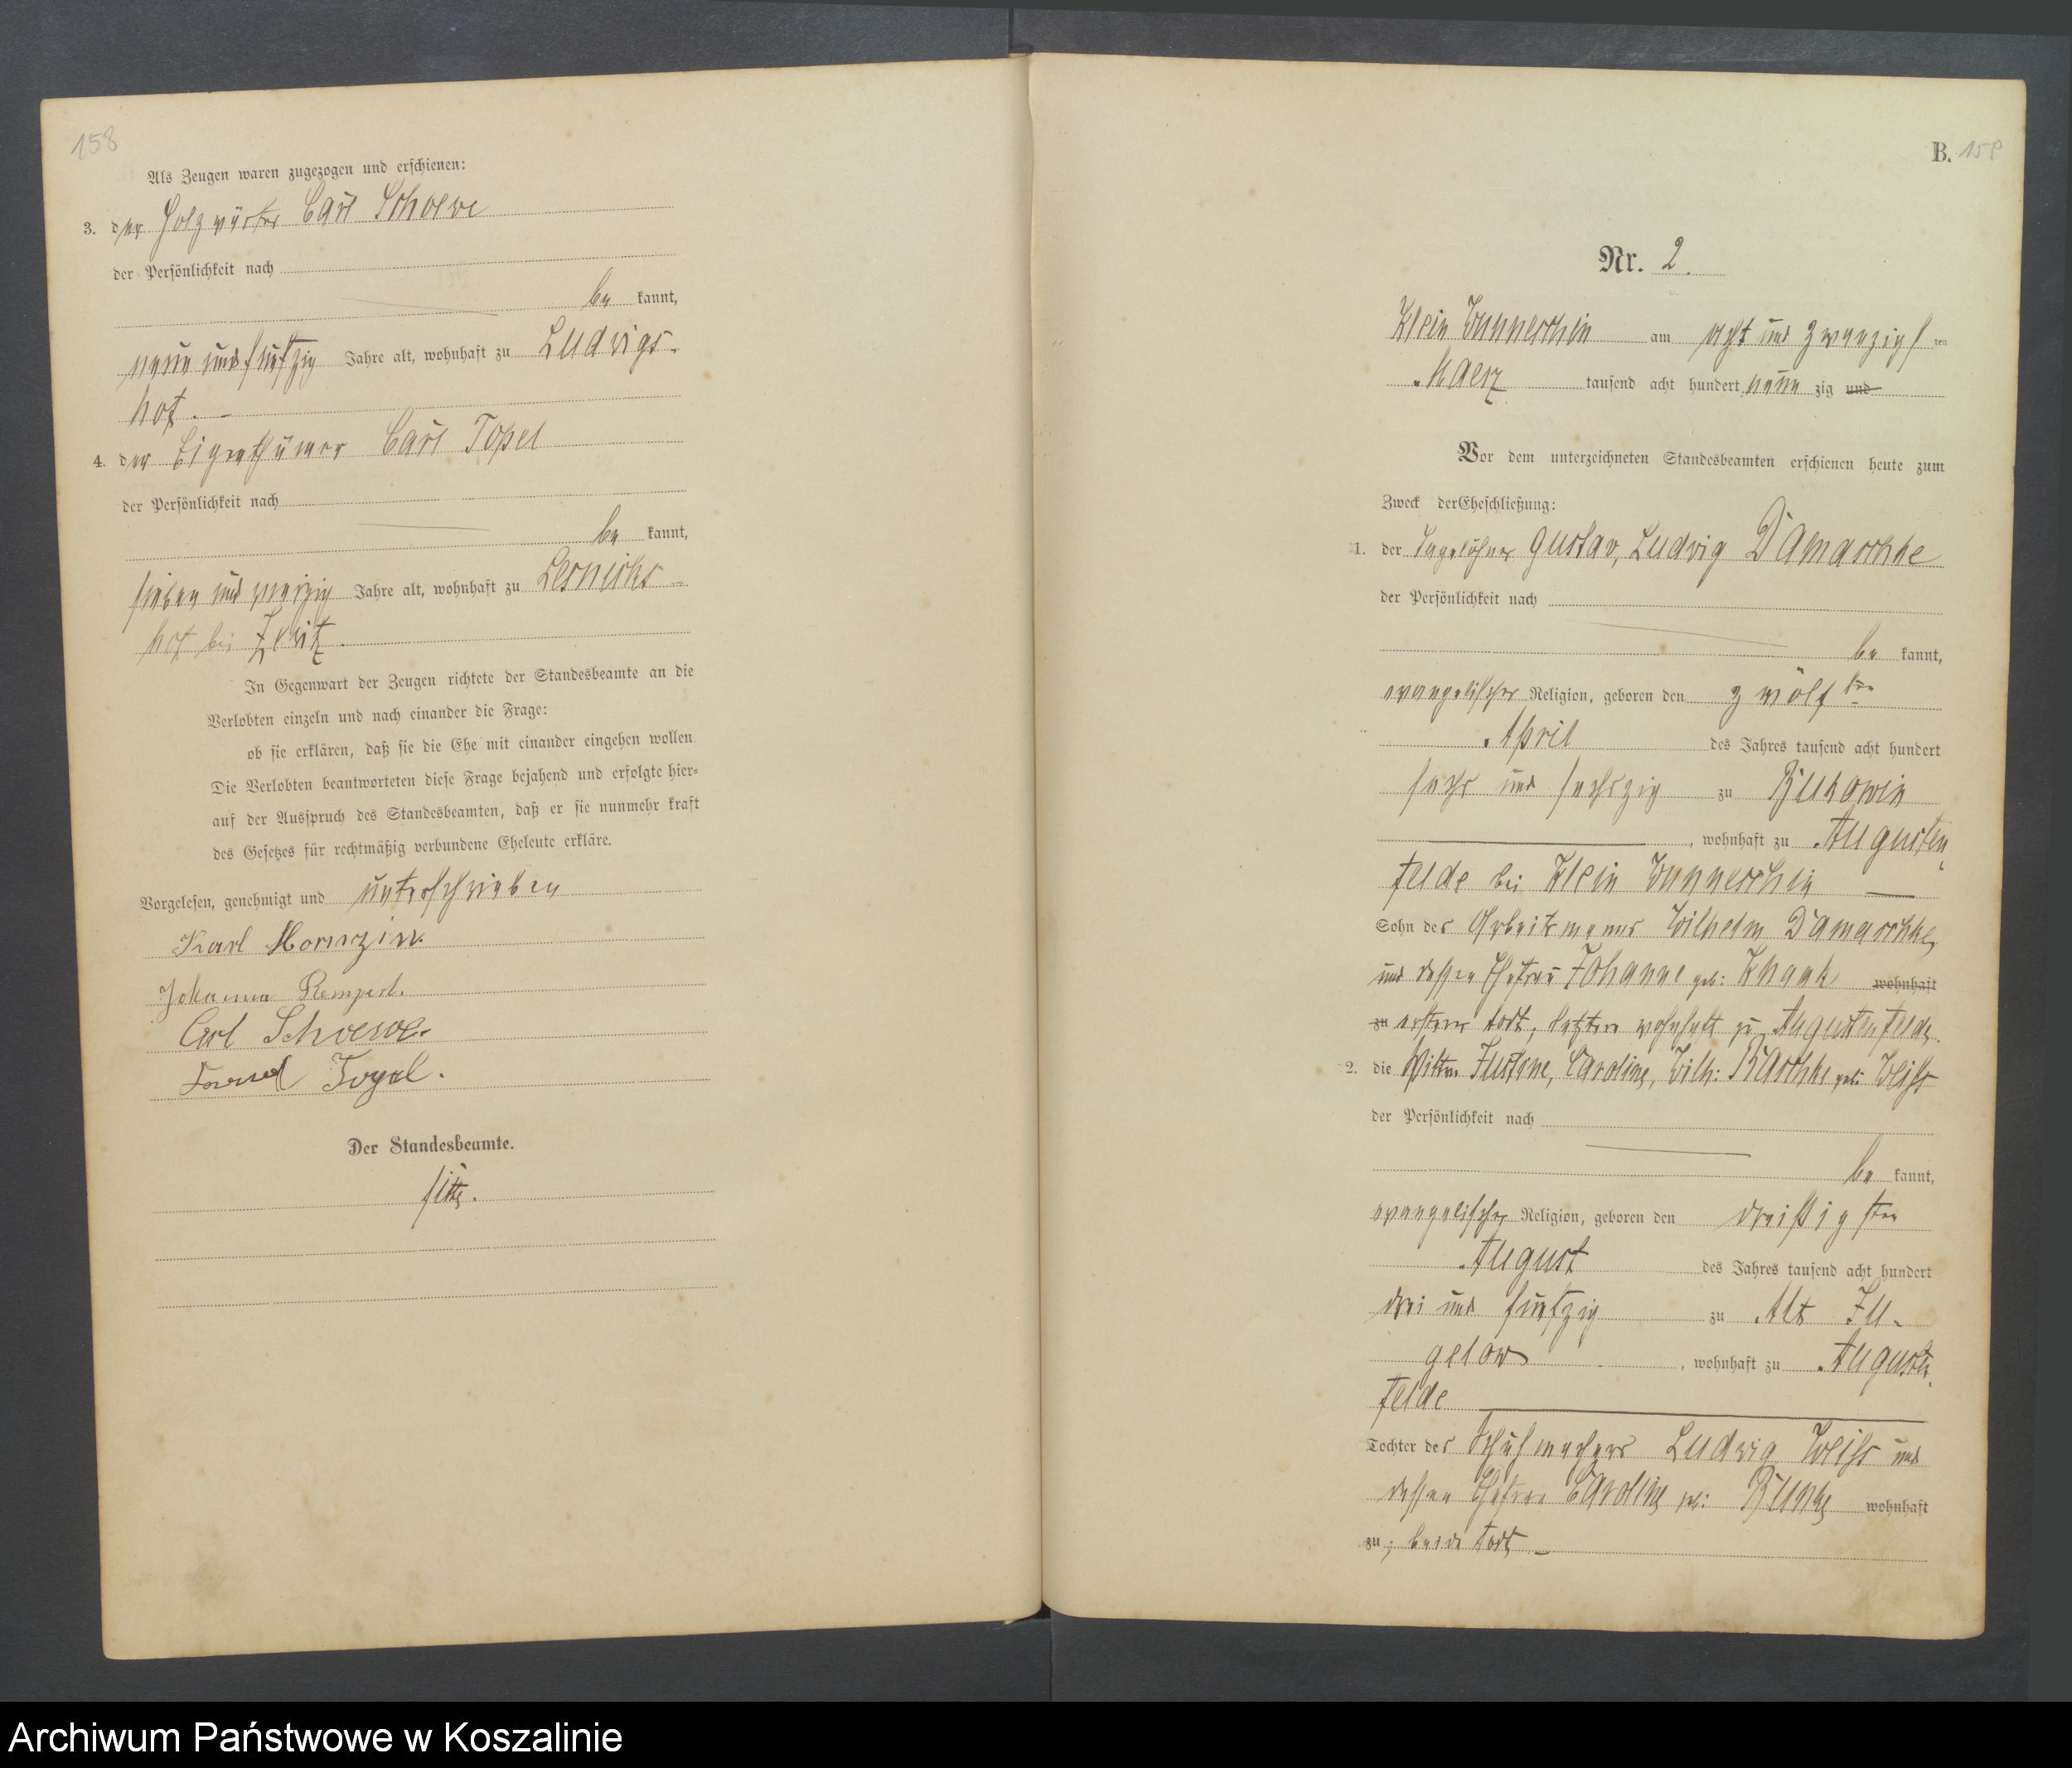 158
Als Zeugen waren zugezogen und erschienen:
3. der Holzwärter Carl Schoewe
der Persönlichkeit nach
be kannt,
neun und fünfzig Jahre alt, wohnhaft zu Ludwigs-
hof. -
4. der Eigenthümer Carl Topel
der Persönlichkeit nach
be kannt,
sieben und vierzig Jahre alt, wohnhaft zu
hof bei
In Gegenwart der Zeugen richtete der Standesbeamte an die
Verlobten einzeln und nach einander die Frage:
ob sie erklären, daß sie die Ehe mit einander eingehen wollen.
Die Verlobten beantworteten diese Frage bejahend und erfolgte hier=
auf der Ausspruch des Standesbeamten, daß er sie nunmehr kraft
des Gesetzes für rechtmäßig verbundene Eheleute erkläre.
Vorgelesen, genehmigt und unterschrieben
Karl
Johanna
Carl Schoewe.
Der Standesbeamte.
B. 159
Nr. 2.
Klein Wunneschin am acht und zwanzigs ten
Maerz tausend acht hundert neun zig und
Vor dem unterzeichneten Standesbeamten erschienen heute zum
Zweck der Eheschließung:
1. der Tagelöhner Gustav, Ludwig Damaschke
der Persönlichkeit nach
be kannt,
evangelischer Religion, geboren den zwölften
April des Jahres tausend acht hundert
sechs und sechszig zu Bukowin
, wohnhaft zu Augusten
felde bei Klein Wunneschin
Sohn des Arbeitsmanns Wilhelm Damaschke,
und dessen Ehefrau Johanne geb: Knaak wohnhaft
zu ersterer todt, letztere wohnhaft zu Augustenfelde.
2. die Wittwe Justine, Caroline, Wilh: Raschke geb: Weiß
der Persönlichkeit nach
be kannt,
evangelischer Religion, geboren den dreißigsten
August des Jahres tausend acht hundert
drei und fünfzig zu Alt Ju-
gelow, wohnhaft zu Augusten
felde
Tochter des Schuhmachers Ludwig Weiß und
dessen Ehefrau Caroline geb: wohnhaft
zu; beide todt, -
Archiwum Państwowe w Koszalinie